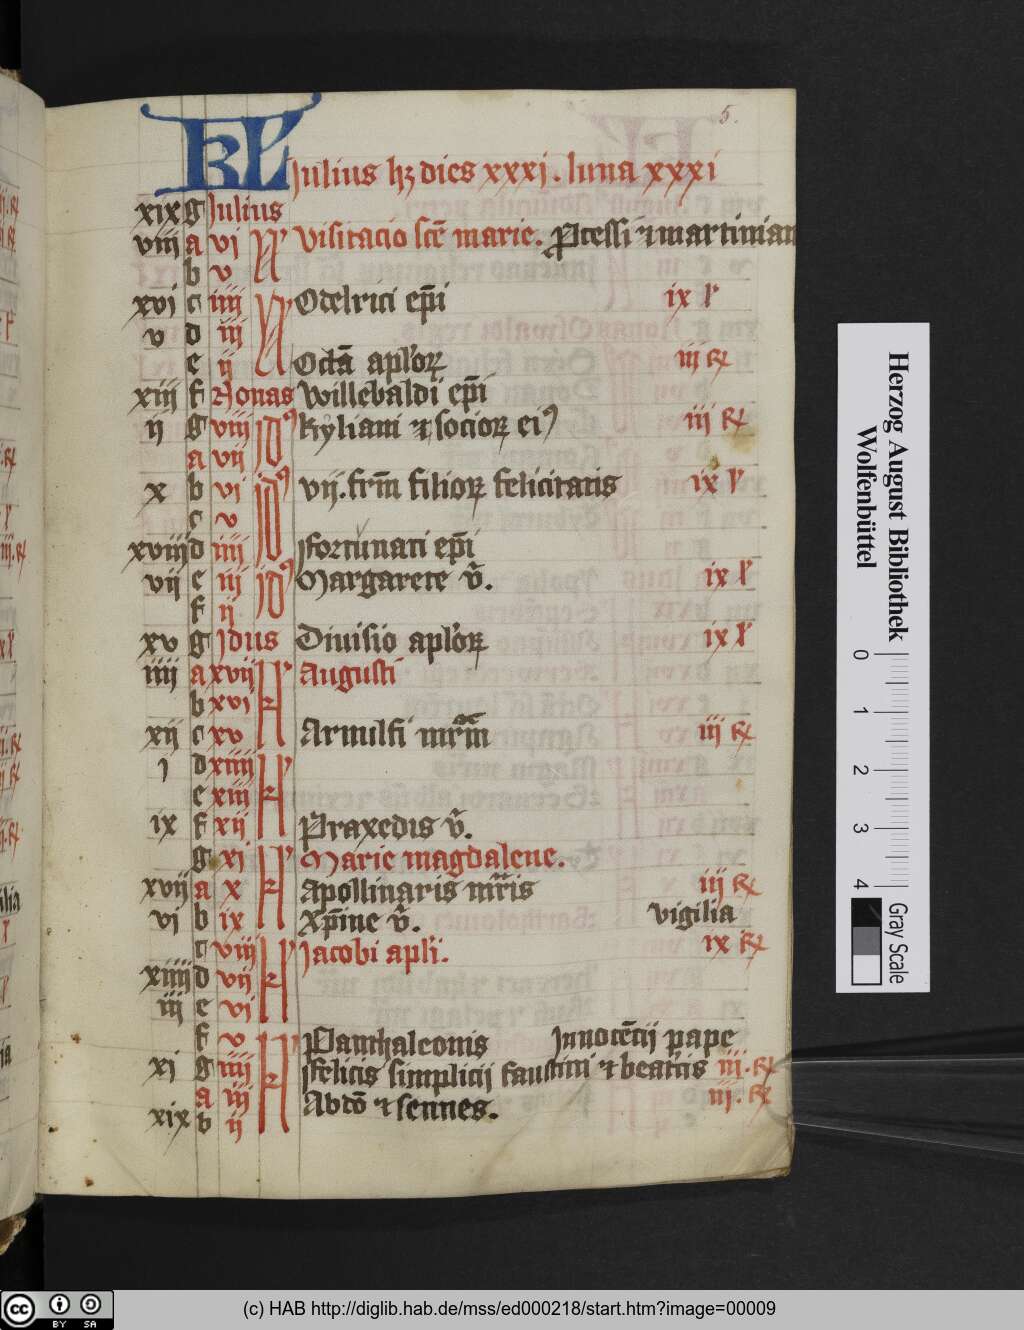 5.
KL Julius hꝫ dies xxxi. luna xxxi
xix g Julius
viii a vi N Visitacio scē marie. Ꝓcessi ⁊ martinian
b v
xvi c iiii N Odelrici ep̄i ix lˀ
v d iii
e ii Octā aplˀoꝝ iii ꝶ
xiii f Nonas Willebaldi ep̄i
ii g viii Idꝰ Kyliani ⁊ socioꝝ eiꝰ iii ꝶ
a vii
x b vi Idꝰ vii. frm̄ filioꝝ felicitatis ix lˀ
c v
xviii d iiii ffortunati ep̄i
vii e iii Idꝰ Margarete v̄. ix lˀ
f ii
xv g Idus Diuisio aplˀoꝝ ix lˀ
iiii a xvii kl Augusti
b xvi
xii c xv Arnulfi mr̄m iii ꝶ
i d xiiii kl
e xiii
ix f xii Praxedis v̄.
g xi kl Marie magdalene.
xvii a x Apollinaris mr̄is iii ꝶ
vi b ix Xp̄ine v̄. vigilia
c viii kl Jacobi apli. ix ꝶ
xiiii d vii
iii e vi
f v kl Panthaleonis Innocētii pape
xi g iiii ffelicis simplicii faustini ⁊ beatˀcis iii. ꝶ
a iii Abdō ⁊ sennes. iii. ꝶ
xix b ii
Herzog August Bibliothek
Wolfenbüttel
0 1 2 3 4
Gray Scale
cc BY SA
(c) HAB http://diglib.hab.de/mss/ed000218/start.htm?image=00009